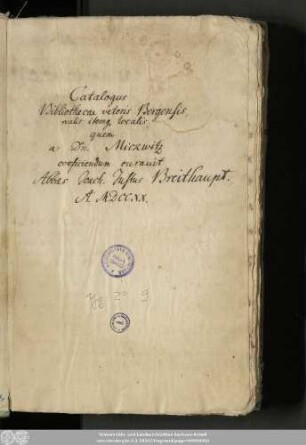 Catalogus
Bibliothecae veteris Bergensis,
realis itemq. localis.
quem
a Dn. Mickwitz
conficiendum curavit
Abbas Joach. Justus Breithaupt.
A. MDCCXX.
2° 9
Universitäts- und Landesbibliothek Sachsen-Anhalt